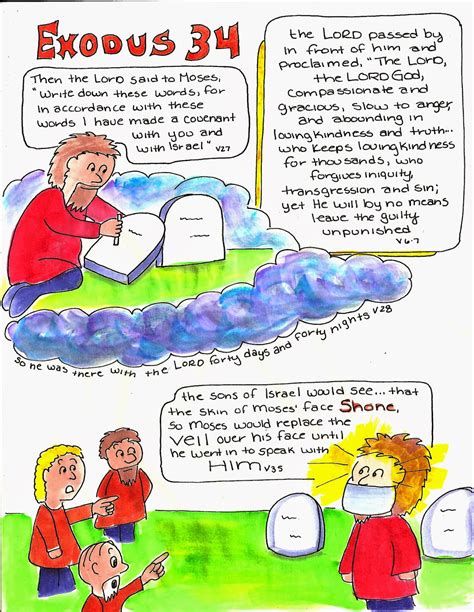 EXODUS 34
Then the LORD said to Moses,
"Write down these words, for
in accordance with these
words I have made a covenant
with you and
with Israel" V27
the LORD passed by
in front of him and
proclaimed, "The LORD,
the LORD GOD,
compassionate and
gracious, slow to anger,
and abounding in
lovingkindness and truth..
who keeps lovingkindness
for thousands, who
forgives iniquity,
transgression and sin;
yet He will by no means
leave the guilty
unpunished
V6-7
So he was there with the LORD forty days and forty nights V28
the sons of Israel would see... that
the skin of Moses' face Shone,
so Moses would replace the
veil over his face until
he went in to speak
with
HIM V35